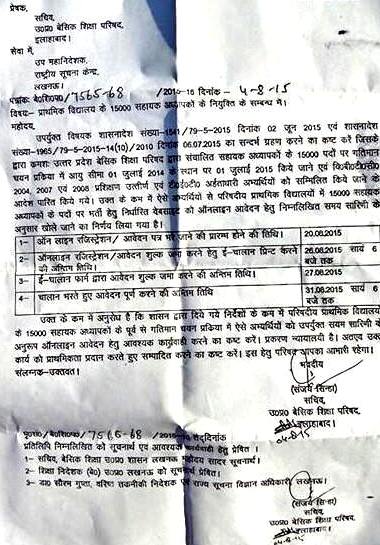 प्रेषक,
सचिव,
उ०प्र० बेसिक शिक्षा परिषद,
इलाहाबाद।
सेवा में,
उप महानिदेशक,
राष्ट्रीय सूचना केन्द्र,
लखनऊ।
पत्रांकः बे०शि०प०/ 7565-68 /2015-16 दिनांक- 4-8-15
विषयः- प्राथमिक विद्यालय के 15000 सहायक अध्यापकों के नियुक्ति के सम्बन्ध में।
महोदय,
उपर्युक्त विषयक शासनादेश संख्या-1541/79-5-2015 दिनांक 02 जून 2015 एवं शासनादेश
संख्या-1965/79-5-2015-14(10)/2010 दिनांक 06.07.2015 का सन्दर्भ ग्रहण करने का कष्ट करें जिसके
द्वारा क्रमशः उत्तर प्रदेश बेसिक शिक्षा परिषद द्वारा संचालित सहायक अध्यापकों के 15000 पदों पर गतिमान
चयन प्रक्रिया में आयु सीमा 01 जुलाई 2014 के स्थान पर 01 जुलाई 2015 किये जाने एवं वि०बी०टी०सी०
2004, 2007 एवं 2008 प्रशिक्षण उत्तीर्ण एवं टी०ई०टी० अर्हताधारी अभ्यर्थियों को सम्मिलित किये जाने के
आदेश पारित किये गये। उक्त के क्रम में ऐसे अभ्यर्थियों से परिषदीय प्राथमिक विद्यालयों में 15000 सहायक
अध्यापकों के पदों पर भर्ती हेतु निर्धारित वेबसाइट को ऑनलाइन आवेदन हेतु निम्नलिखित समय सारिणी के
अनुसार खोले जाने का निर्णय लिया गया है।
1- ऑन लाइन रजिस्ट्रेशन/ आवेदन पत्र भरे जाने की प्रारम्भ होने की तिथि। 12.08.2015
2- ऑनलाइन रजिस्ट्रेशन/ शुल्क जमा करने हेतु ई-चालान प्रिन्ट करने की अन्तिम तिथि। 26.08.2015 सायं 6 बजे तक
3- ई-चालान फार्म द्वारा आवेदन शुल्क जमा करने की अन्तिम तिथि। 27.08.2015
4- चालान भरते हुए आवेदन पूर्ण करने की अन्तिम तिथि 31.08.2015 सायं 6 बजे तक
उक्त के क्रम में अनुरोध है कि शासन द्वारा दिये गये निर्देशों के क्रम में परिषदीय प्राथमिक विद्यालय
के 15000 सहायक अध्यापकों के पूर्व से गतिमान चयन प्रक्रिया में ऐसे अभ्यर्थियों को उपर्युक्त समय सारिणी के
अनुरूप ऑनलाइन आवेदन हेतु आवश्यक कार्यवाही करने का कष्ट करें। प्रकरण न्यायालयी है। अतएव उक्त
कार्य को प्राथमिकता प्रदान करते हुए सम्पादित करने का कष्ट करें। इस हेतु परिषद आपका आभारी रहेगा।
संलग्नक-उक्तवत्।
भवदीय
(संजय सिन्हा)
सचिव,
उ०प्र० बेसिक शिक्षा परिषद,
इलाहाबाद।
04-8-15
पृ०सं०/ बे०शि०प०/ 7565-68 /2015-16 तद्दिनांक
प्रतिलिपि निम्नलिखित को सूचनार्थ एवं आवश्यक कार्यवाही हेतु प्रेषित।
1- सचिव, बेसिक शिक्षा उ०प्र० शासन लखनऊ महोदय सादर सूचनार्थ।
2- शिक्षा निदेशक (बे०) उ०प्र० लखनऊ को सूचनार्थ प्रेषित।
3- डा० सौरभ गुप्ता, वरिष्ठ तकनीकी निदेशक एवं राज्य सूचना विज्ञान अधिकारी, लखनऊ।
(संजय सिन्हा)
सचिव,
उ०प्र० बेसिक शिक्षा परिषद,
इलाहाबाद।
04-8-15